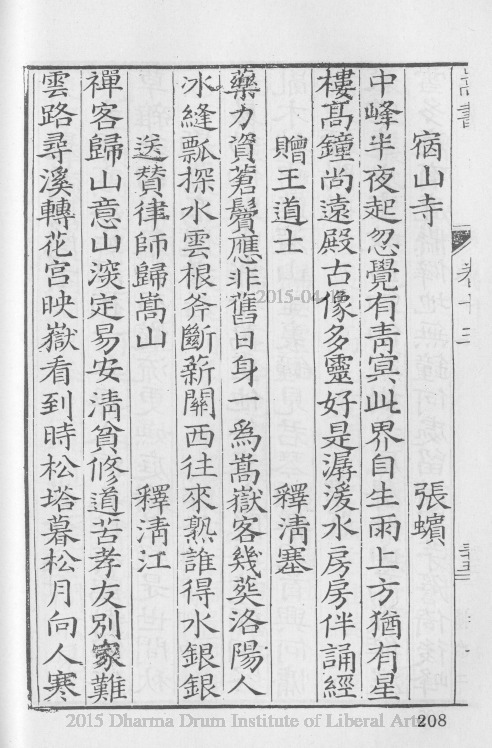 嵩書 卷十三 三五
宿山寺 張蠙
中峰半夜起忽覺有靑㝠此界自生雨上方猶有星
樓髙鐘尚遠殿古像多靈好是潺湲水房房伴誦經
贈王道士 釋淸塞
藥力資蒼鬢應非舊日身 爲嵩嶽客幾葬洛陽人
冰縫瓢探水雲根斧斷薪關西往來熟誰得水銀銀
送賛律師歸嵩山 釋淸江
禪客歸山意山深定易安淸貧修道苦孝友別家難
雲路尋溪轉花宮映嶽看到時松塔暮松月向人寒
2015-04
2015 Dharma Drum Institute of Liberal Arts
208